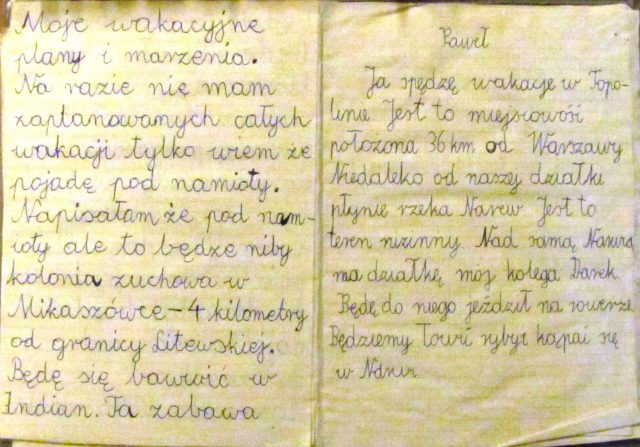 Moje wakacyjne
plany i marzenia.
Na razie nie mam
zaplanowanych całych
wakacji tylko wiem że
pojadę pod namioty.
Napisałam że pod nam-
ioty ale to będze niby
kolonia zuchowa w
Mikaszówce - 4 kilometry
od granicy Litewskiej.
Będę się bawić w
Indian. Ta zabawa
Paweł
Ja spędzę wakacje w Topo-
linie. Jest to miejscowość
położona 36 km od Warszawy
Niedaleko od naszej działki
płynie rzeka Narew Jest to
teren nizinny. Nad samą Narwią
ma działkę mój kolega Darek.
Będę do niego jeździł na rowerze
Będziemy łowić ryby i kąpać się
w